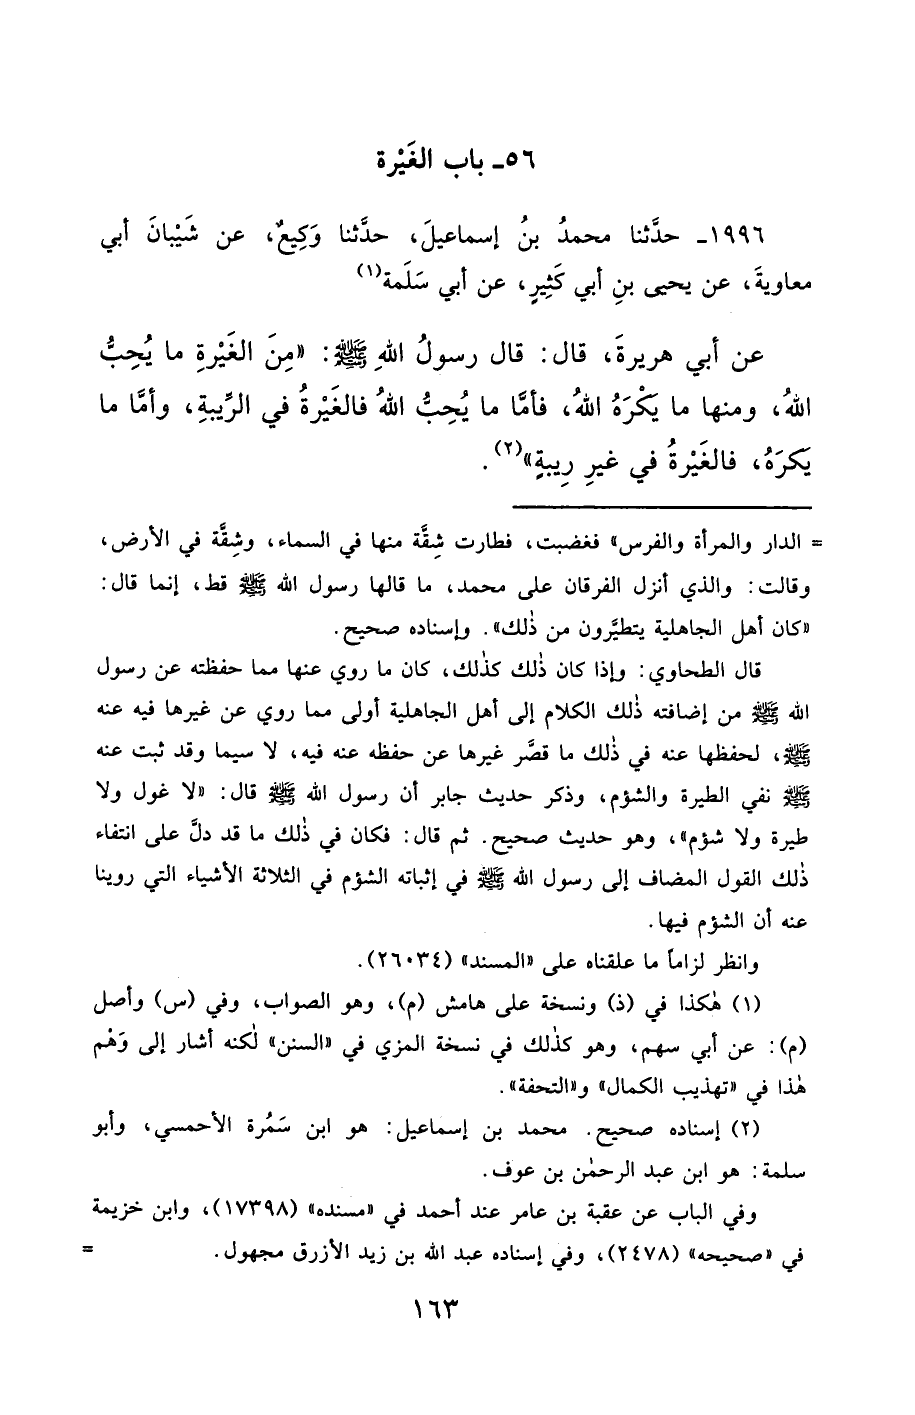 ٥٦ـ باب الغَيْرة
١٩٩٦ـ حدَّثنا محمدُ بنُ إسماعيلَ، حدَّثنا وَكِيعٌ، عن شَيْبانَ أبي
معاويةَ، عن يحيى بنِ أبي كَثِيرٍ، عن أبي سَلَمة(١)
عن أبي هريرةَ، قال: قال رسولُ اللهِ ﷺ: «مِنَ الغَيْرةِ ما يُحِبُّ
اللهُ، ومنها ما يَكْرَهُ اللهُ، فأمَّا ما يُحِبُّ اللهُ فالغَيْرةُ في الرِّيبةِ، وأمَّا ما
يَكرَهُ، فالغَيْرةُ في غيرِ رِيبةٍ»(٢).
= الدار والمرأة والفرس» فغضبت، فطارت شِقَّة منها في السماء، وشِقَّة في الأرض،
وقالت: والذي أنزل الفرقان على محمد، ما قالها رسول الله ﷺ قط، إنما قال:
«كان أهل الجاهلية يتطيَّرون من ذٰلك». وإسناده صحيح.
قال الطحاوي: وإذا كان ذٰلك كذٰلك، كان ما روي عنها مما حفظته عن رسول
الله ﷺ من إضافته ذٰلك الكلام إلى أهل الجاهلية أولى مما روي عن غيرها فيه عنه
ﷺ، لحفظها عنه في ذٰلك ما قصَّر غيرها عن حفظه عنه فيه، لا سيما وقد ثبت عنه
ﷺ نفي الطيرة والشؤم، وذكر حديث جابر أن رسول الله ﷺ قال: «لا غول ولا
طيرة ولا شؤم»، وهو حديث صحيح. ثم قال: فكان في ذٰلك ما قد دلَّ على انتفاء
ذٰلك القول المضاف إلى رسول الله ﷺ في إثباته الشؤم في الثلاثة الأشياء التي روينا
عنه أن الشؤم فيها.
وانظر لزاماً ما علقناه على «المسند» (٢٦٠٣٤).
(١) هٰكذا في (ذ) ونسخة على هامش (م)، وهو الصواب، وفي (س) وأصل
(م): عن أبي سهم، وهو كذٰلك في نسخة المزي في «السنن» لٰكنه أشار إلى وَهْم
هٰذا في «تهذيب الكمال» و«التحفة».
(٢) إسناده صحيح. محمد بن إسماعيل: هو ابن سَمُرة الأحمسي، وأبو
سلمة: هو ابن عبد الرحمٰن بن عوف.
وفي الباب عن عقبة بن عامر عند أحمد في «مسنده» (١٧٣٩٨)، وابن خزيمة
في «صحيحه» (٢٤٧٨)، وفي إسناده عبد الله بن زيد الأزرق مجهول. =
١٦٣